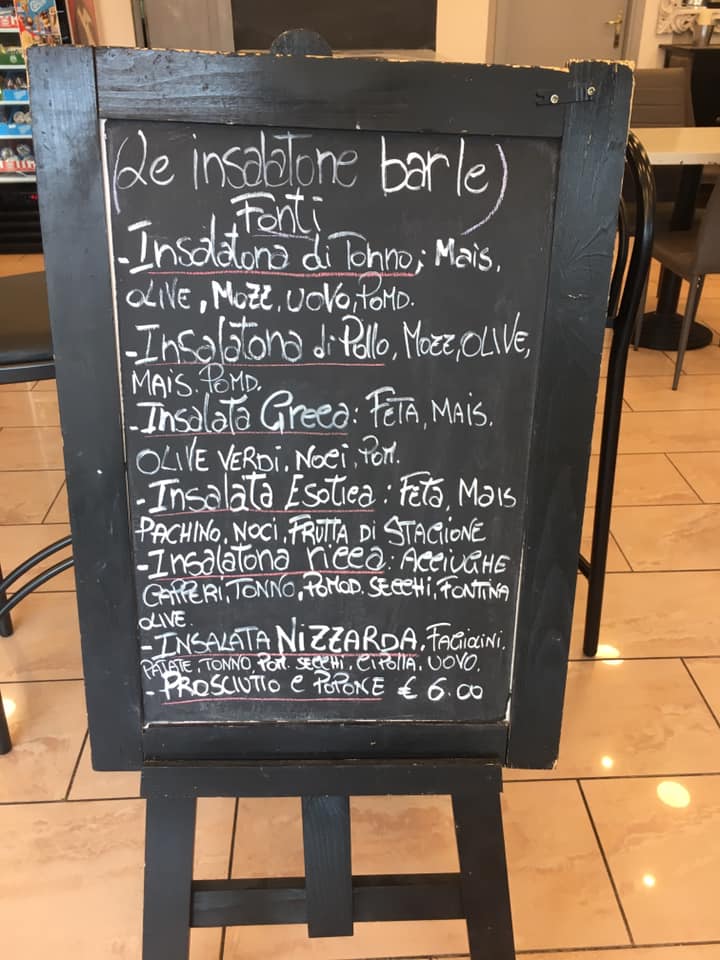 (Le insalatone bar le)
Fonti
-Insalatona di Tonno; Mais,
OLIVE, MOZZ, UOVO, POMD.
-Insalatona di Pollo, MOZZ, OLIVE,
MAIS. POMD.
-Insalata Greca: FETA, MAIS.
OLIVE VERDI, NOCI, POM.
-Insalata Esotica: FETA, MAIS
PACHINO, NOCI, FRUTTA DI STAGIONE
-Insalatona ricca: ACCIUGHE
CAPPERI, TONNO, POMOD. SECCHI, FONTINA
OLIVE.
-INSALATA NIZZARDA, FAGIOLINI,
PATATE, TONNO, POM. SECCHI, CIPOLLA, UOVO,
-PROSCIUTTO e POPONE € 6.00